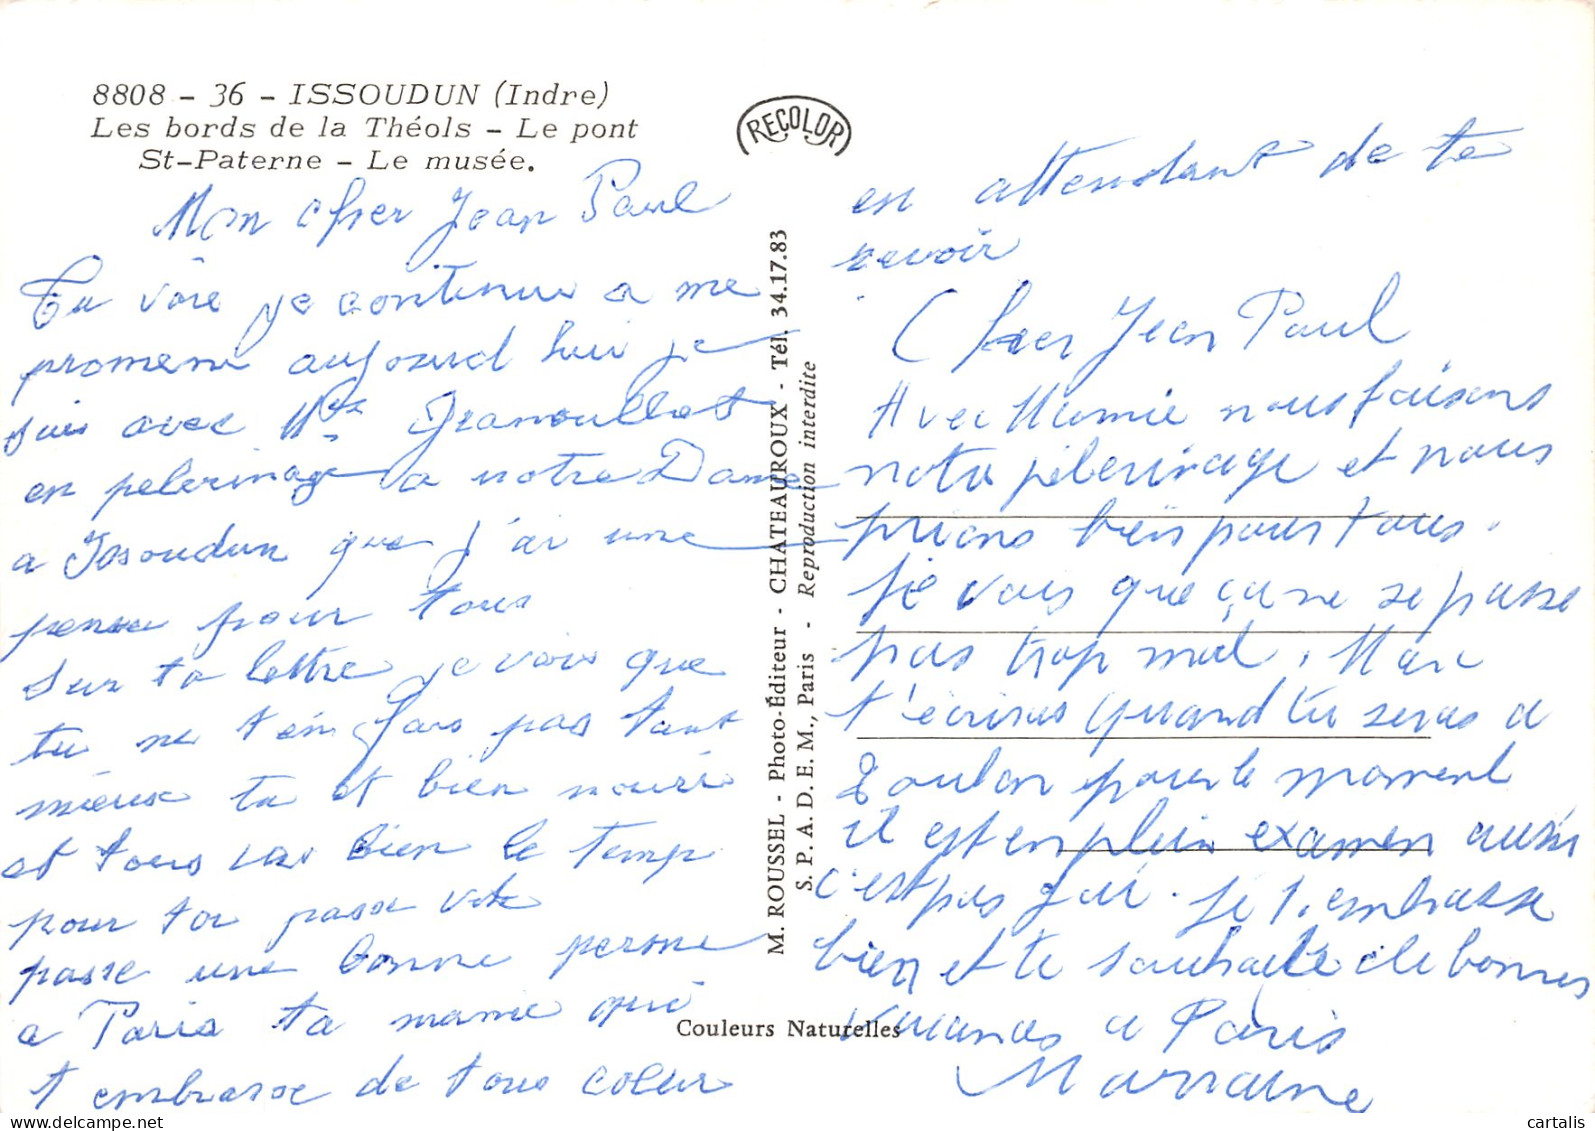 8808 - 36 - ISSOUDUN (Indre)
Les bords de la Théols - Le pont
St-Paterne - Le musée.
REÇOLOR
Mon cher Jean Paul
Tu vois je continue a me
promener aujourd hui je
suis avec Mde
en pelerinage a notre Dame
a Issoudun que j'ai une
pensee pour tous
Sur ta lettre je vois que
tu ne t en fais pas tant
mieux tu et bien nourri
et tous vas bien le temp
pour toi passe vite
passe une bonne persone
a Paris ta mamie qui
t embrasse de tous coeur
en attendant de te
revoir
M. ROUSSEL - Photo-Éditeur - CHATEAUROUX - Tél. 34.17.83
S. P. A. D. E. M., Paris - Reproduction interdite
Couleurs Naturelles
Cher Jean Paul
Avec Mamie nous faisons
notre pèlerinage et nous
prions bien pour tous.
Je vois que ça ne se passe
pas trop mal. Marc
t'écriras quand tu seras a
Toulon pour le moment
il est en plein examen aussi
c'est pas gai. Je t'embrasse
bien et te souhaite de bonnes
vacances a Paris
Marraine
cartalis